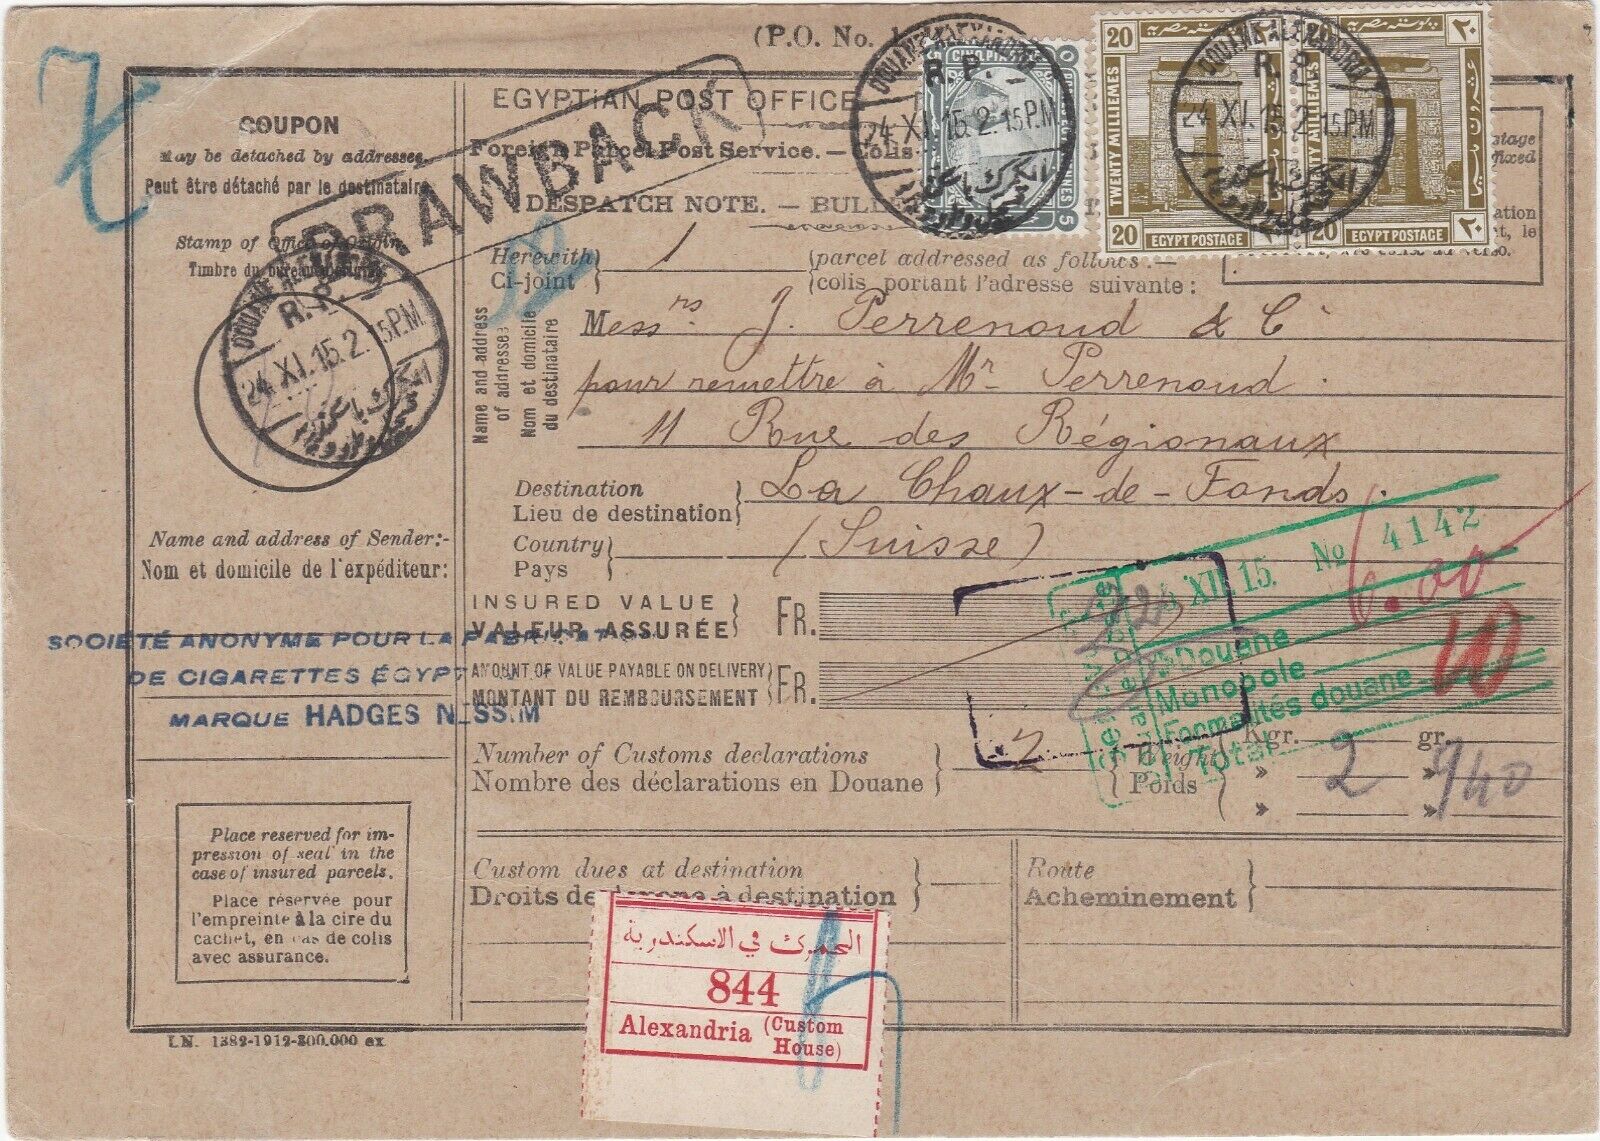 (P.O. No.
COUPON
May be detached by addressee.
Peut être détaché par le destinataire.
Stamp of Office of Origin
Timbre du bureau
DOUANE ALEXANDRIE
R.P.
24 XI.15.2.15P.M.
DRAWBACK
EGYPTIAN POST OFFICE
Foreign Parcel Post Service. — Colis
DESPATCH NOTE. — BULLE
CINQ PIASTRES
5
DOUANE ALEXANDRIE
R.P.
24 XI.15.2.15P.M.
20
بوسته مصرية
٢٠
TWENTY MILLIEMES
20
EGYPT POSTAGE
٢٠
20
بوسته مصرية
٢٠
TWENTY MILLIEMES
عشرون مليم
20
EGYPT POSTAGE
٢٠
DOUANE ALEXANDRIE
R.P.
24 XI.15.2.15P.M.
Herewith
Ci-joint
1
parcel addressed as follows:—
colis portant l'adresse suivante:
Name and address
of addressee
Nom et domicile
du destinataire
Messrs. J. Perrenoud & Cie
pour remettre à Mr Perrenoud.
11 Rue des Régionaux
Destination
Lieu de destination
La Chaux-de-Fonds.
Country
Pays
(Suisse)
Name and address of Sender:-
Nom et domicile de l'expéditeur:
SOCIÉTÉ ANONYME POUR LA FABRICATION
DE CIGARETTES ÉGYPT
MARQUE HADGES NESSIM
INSURED VALUE
VALEUR ASSURÉE
FR.
AMOUNT OF VALUE PAYABLE ON DELIVERY
MONTANT DU REMBOURSEMENT
FR.
XII.15. No 4142
Douane
Monopole
Formalités douane
Total
6.00
10
Number of Customs declarations
Nombre des déclarations en Douane
2
Weight
Poids
Kgr.
gr.
» 2 » 940
» »
Place reserved for im-
pression of seal in the
case of insured parcels.
Place réservée pour
l'empreinte à la cire du
cachet, en cas de colis
avec assurance.
Custom dues at destination
Droits de douane à destination
Route
Acheminement
الجمرك في الاسكندرية
844
Alexandria (Custom House)
I.N. 1382-1912-300.000 ex